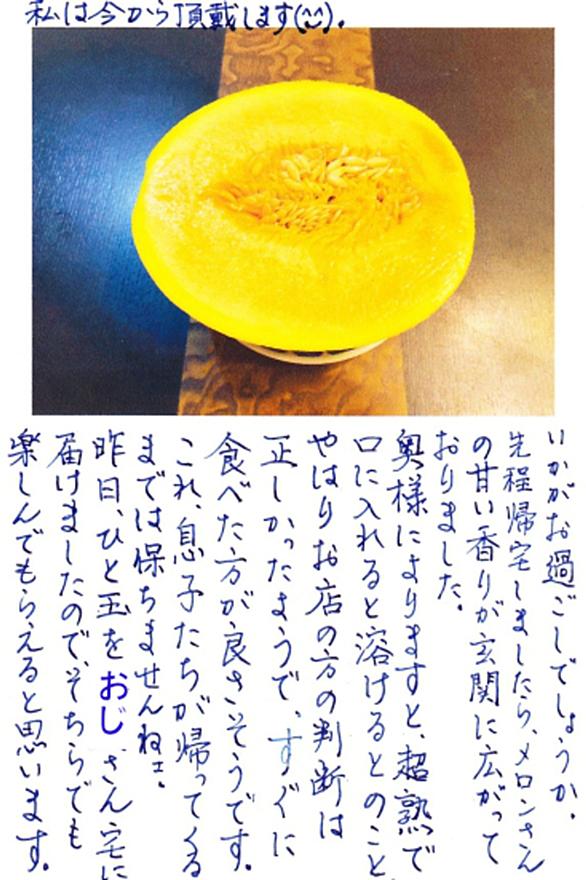 私は今から頂戴します(^^).
いかがお過ごしでしょうか.
先程帰宅しましたら、メロンさん
の甘い香りが玄関に広がって
おりました.
奥様によりますと、超熟で
口に入れると溶けるとのこと.
やはりお店の方の判断は
正しかったようで、すぐに
食べた方が良さそうです.
これ、息子たちが帰ってくる
までは保ちませんねェ.
昨日、ひと玉をおじさん宅に
届けましたので、そちらでも
楽しんでもらえると思います.